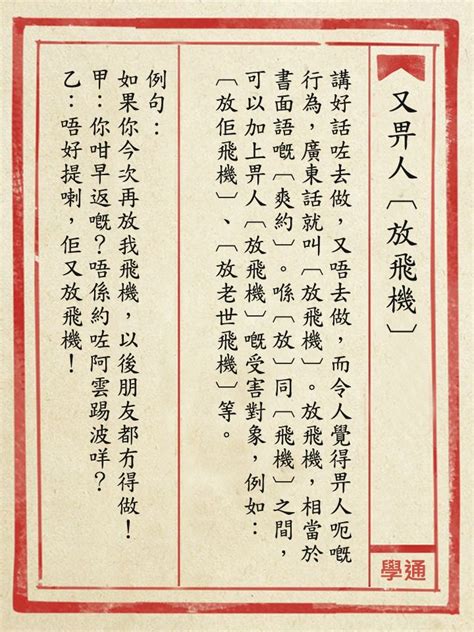 又畀人﹝放飛機﹞
講好話咗去做，又唔去做，而令人覺得畀人呃嘅
行為，廣東話就叫﹝放飛機﹞。放飛機，相當於
書面語嘅﹝爽約﹞。喺﹝放﹞同﹝飛機﹞之間，
可以加上畀人﹝放飛機﹞嘅受害對象，例如：
﹝放佢飛機﹞、﹝放老世飛機﹞等。
例句：
如果你今次再放我飛機，以後朋友都冇得做！
甲：你咁早返嘅？唔係約咗阿雲踢波咩？
乙：唔好提喇，佢又放飛機！
學通